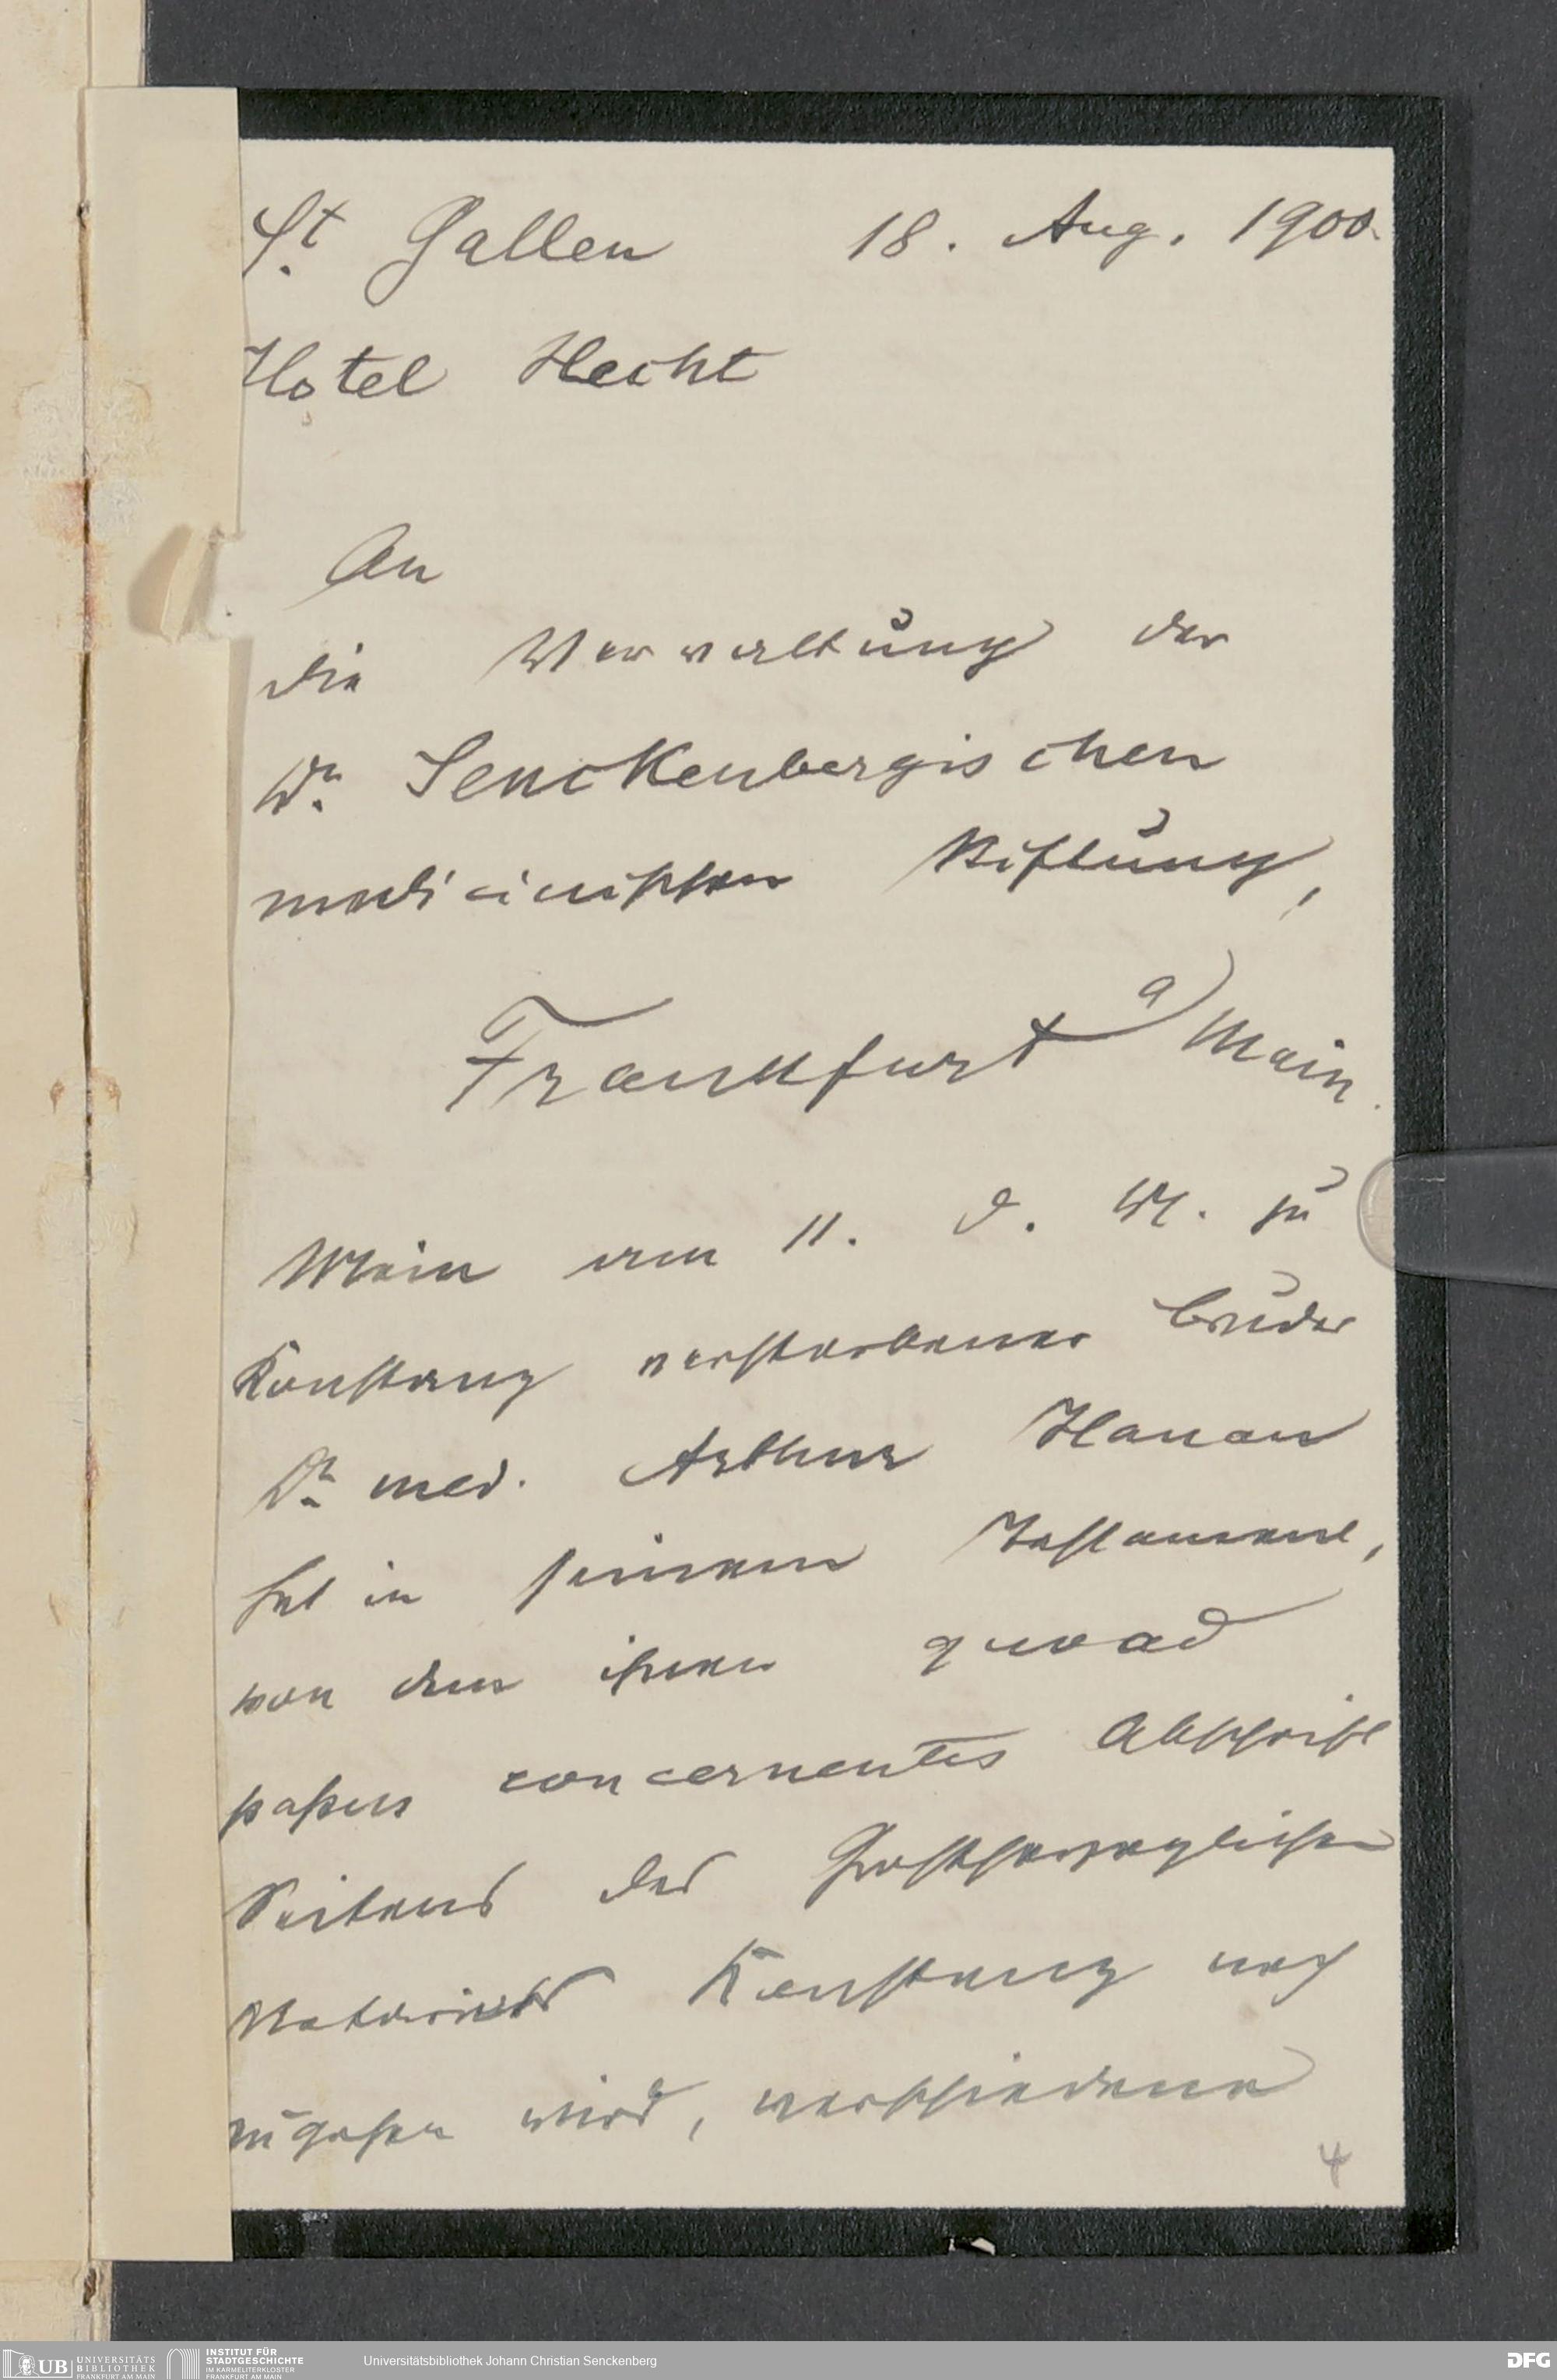 St. Gallen 18. Aug. 1900.
Hotel Hecht
An
die Verwaltung der
Dr. Senckenbergischen
medicinischen Stiftung,
Frankfurt a/Main.
Mein am 11. d. M. zu
Konstanz verstorbener Bruder
Dr. med. Arthur Hanau
hat in seinem Testament,
von dem ihnen quoad
passus concernentes Abschrift
Seitens des Großherzoglichen
Notariats Konstanz noch
zugehen wird, verschiedene
4
UB UNIVERSITÄTS
BIBLIOTHEK
FRANKFURT AM MAIN
INSTITUT FÜR
STADTGESCHICHTE
IM KARMELITERKLOSTER
FRANKFURT AM MAIN
Universitätsbibliothek Johann Christian Senckenberg
DFG